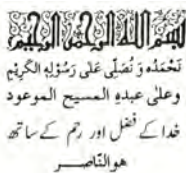 بسم الله الرحمن الرحيم
نَحْمَدُہٗ وَ نُصَلِّی عَلٰی رَسُوْلِہِ الْکَرِیْمِ
وعلیٰ عبدہِ المسیح الموعود
خدا کے فضل اور رحم کے ساتھ
هو النّاصر